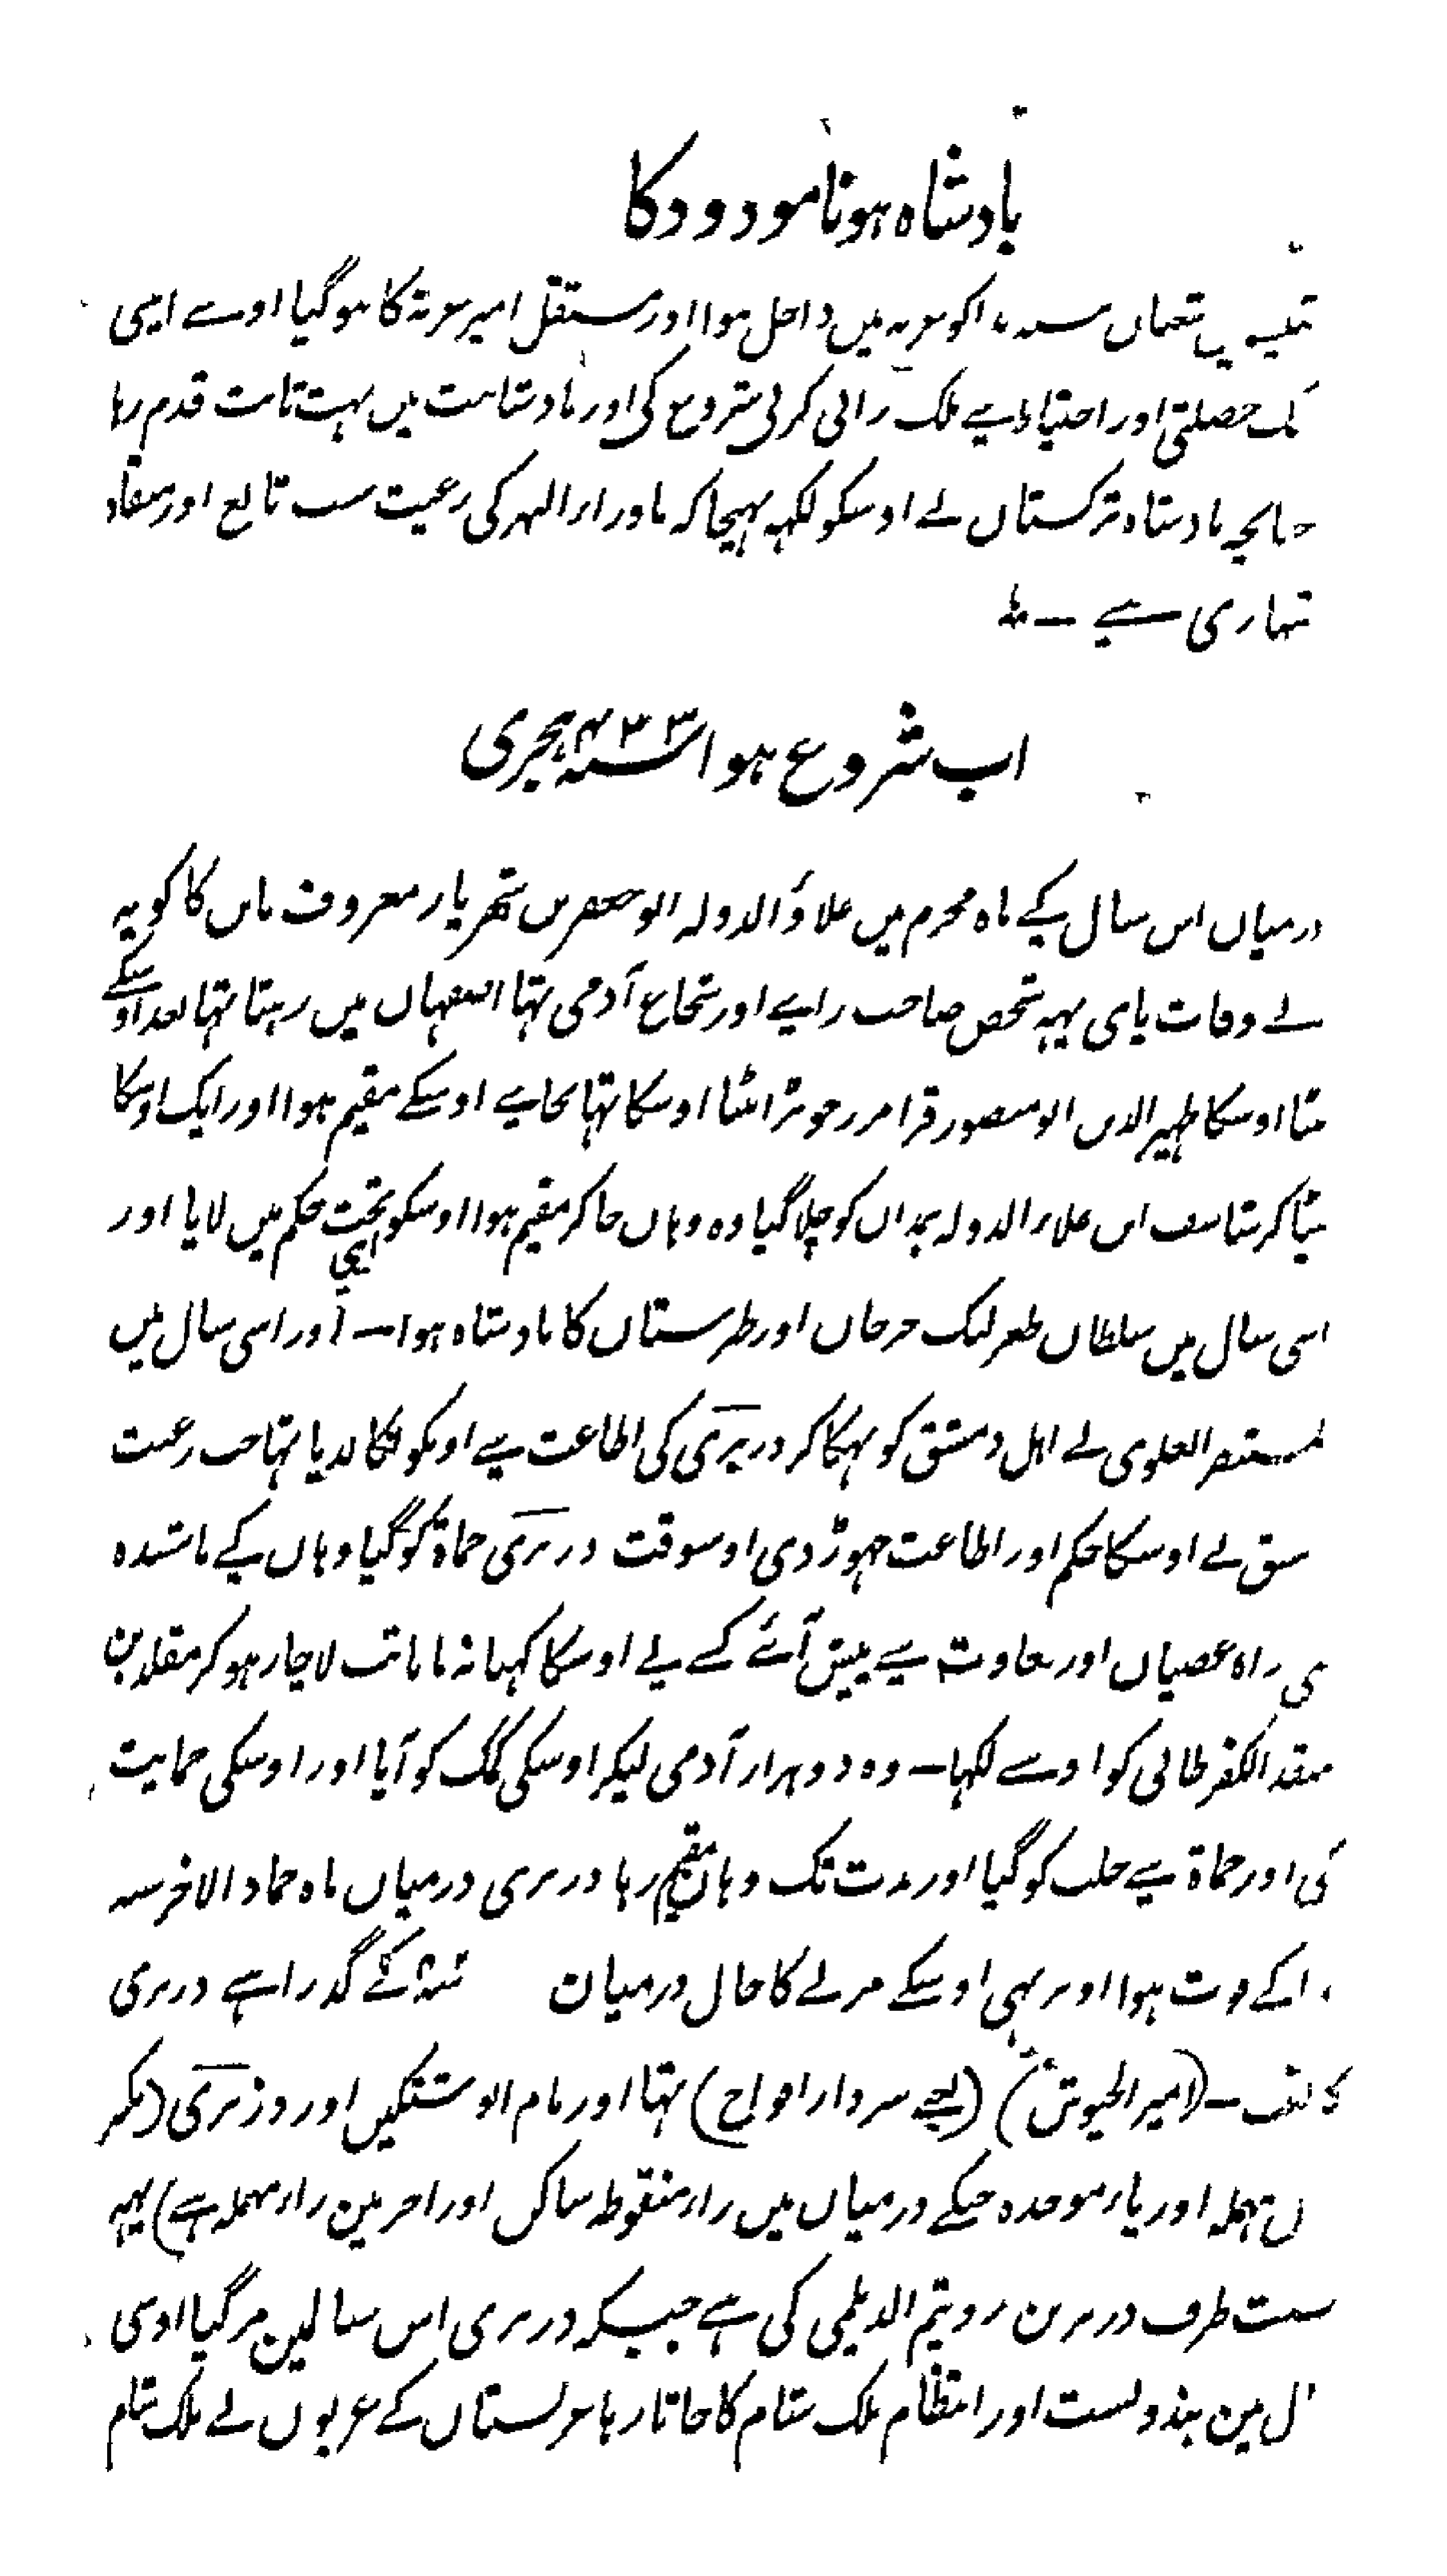 بادشاہ ہونا مودود کا
تیئسویں شعبان سنہ کو غزنہ میں داخل ہوا اور مستقل امیر غزنہ کا ہو گیا اوسے ایسی
نیک خصلتی اور احتیاط سے ملک رانی کرنی شروع کی اور بادشاہت میں بہت ثابت قدم رہا
چنانچہ بادشاہ ترکستان نے اوسکو لکہہ بہیجا کہ ماوراء النہر کی رعیت سب تابع اور منقاد
تمہاری ہے ـــ
اب شروع ہوا سنہ ۴۳۳ ہجری
درمیان اس سال کے ماہ محرم میں علاؤ الدولہ ابو جعفر بن شہریار معروف بابن کاکویہ
نے وفات پائی یہہ شخص صاحب رایے اور شجاع آدمی تہا اصفہان میں رہتا تہا بعد اوسکے
بیٹا اوسکا ظہیر الدین ابو منصور فرامرز جو بڑا بیٹا اوسکا تہا بجایے اوسکے مقیم ہوا اور ایک اوسکا
بیٹا کرشاسف ابن علاء الدولہ ہمدان کو چلا گیا وہ وہاں جا کر مقیم ہوا اوسکو اپنی تحت حکم میں لایا اور
اسی سال میں سلطان طغرلبک جرجان اور طبرستان کا بادشاہ ہوا ـــ اور اسی سال میں
المستنصر العلوی نے اہل دمشق کو بہکا کر دزبری کی اطاعت سے اونکو نکالدیا تہا جب رعیت
دمشق نے اوسکا حکم اور اطاعت چہوڑ دی اوسوقت دزبری حماۃ کو گیا وہاں کے باشندہ
بی راہ عصیان اور بغاوت سے پیش آئے کسے نے اوسکا کہا نہ مانا تب لاچار ہو کر مقلد بن
منقد الکفرطابی کو اوسے لکہا ـــ وہ دو ہزار آدمی لیکر اوسکی کمک کو آیا اور اوسکی حمایت
کی اور حماۃ سے حلب کو گیا اور مدت تک وہاں مقیم رہا دزبری درمیان ماہ جماد الاخر سنہ
کے فوت ہوا اور بہی اوسکے مرنے کا حال درمیان سنہ کے گذرا ہے دزبری
کا لقب ـــ (امیر الجیوش) (یعنے سردار افواج) تہا اور نام انوشتکین اور دزبری (بکسر
دال مہملہ اور باء موحدہ جسکے درمیان میں زاء منقوطہ ساکن اور اخر مین راء مہملہ ہے) یہہ
نسبت طرف دزبر بن رویتم الدیلمی کی ہے جبکہ دزبری اس سالمین مر گیا اوسی
سال مین بندوبست اور انتظام ملک شام کا جاتا رہا عربستان کے عربوں نے ملک شام